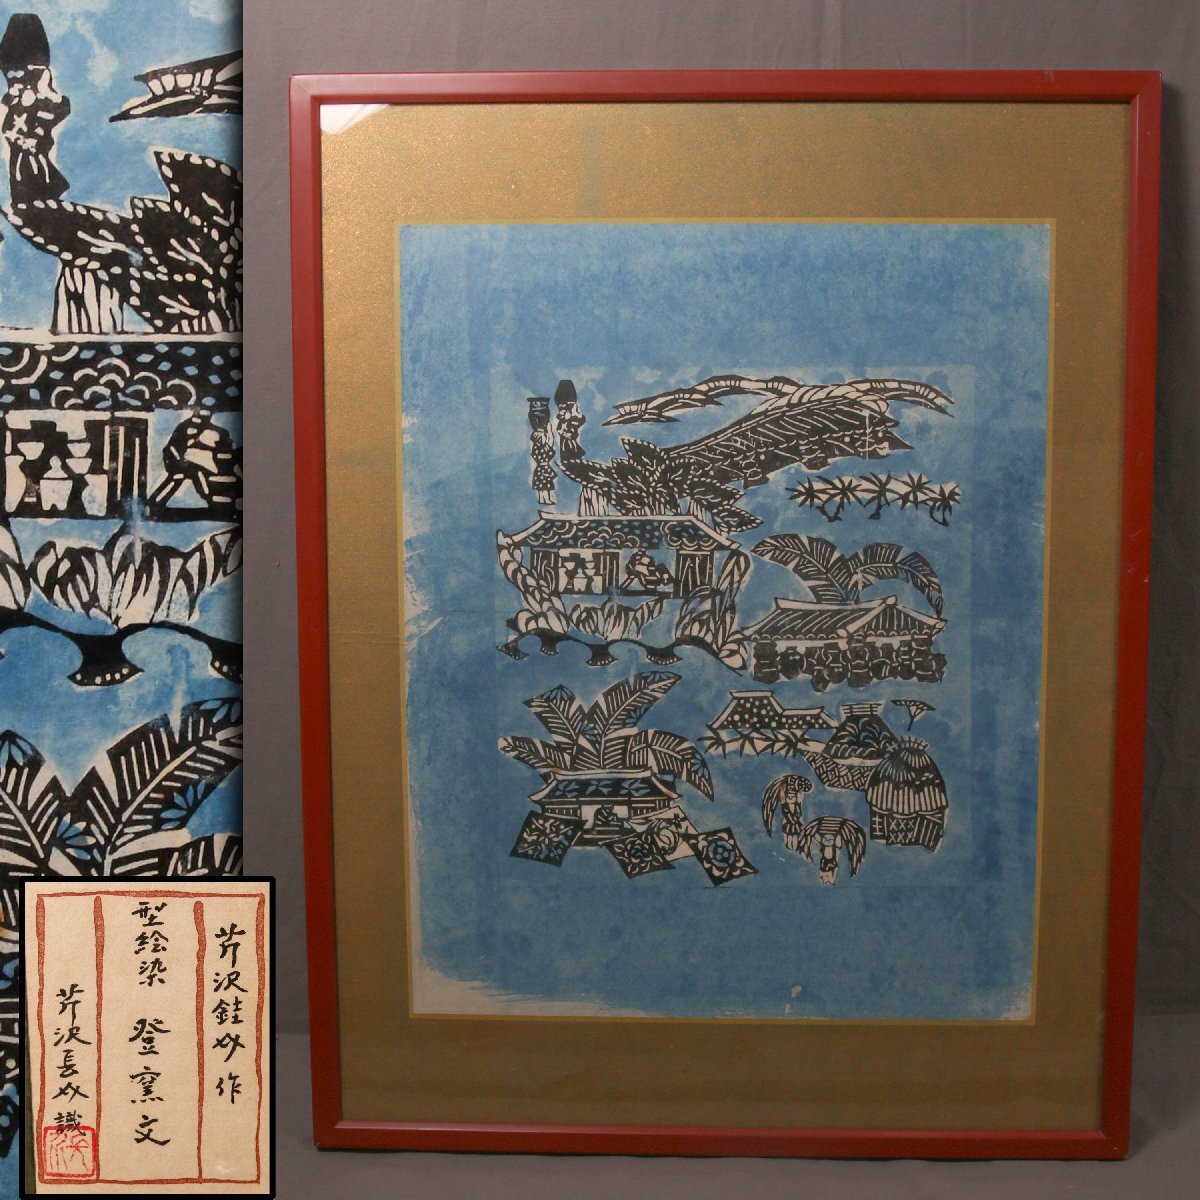 芹沢銈介作
型絵染 登窯文
芹沢長介識